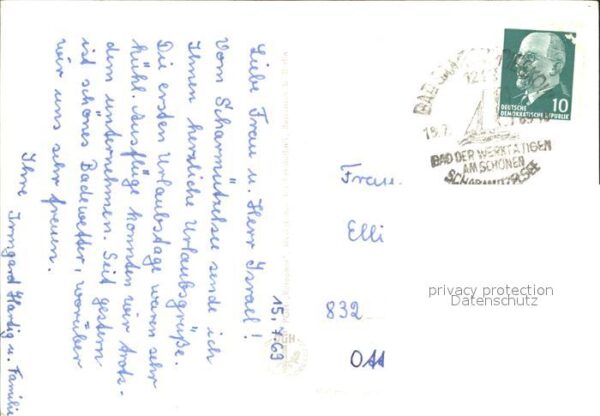 15.7.69
Liebe Frau u. Herr Israel!
Vom Scharmützelsee sende ich
Ihnen herzliche Urlaubsgrüße.
Die ersten Urlaubstage waren sehr
kühl. Ausflüge konnten wir trotz-
dem unternehmen. Seit gestern
ist schönes Badewetter, worüber
wir uns sehr freuen.
Ihre Irmgard Hartig u. Familie
DEUTSCHE
DEMOKRATISCHE REPUBLIK
10
BAD
18.7.
BAD DER WERKTÄTIGEN
AM SCHÖNEN
SCHARMÜTZELSEE
Frau
Elli
832
privacy protection
Datenschutz